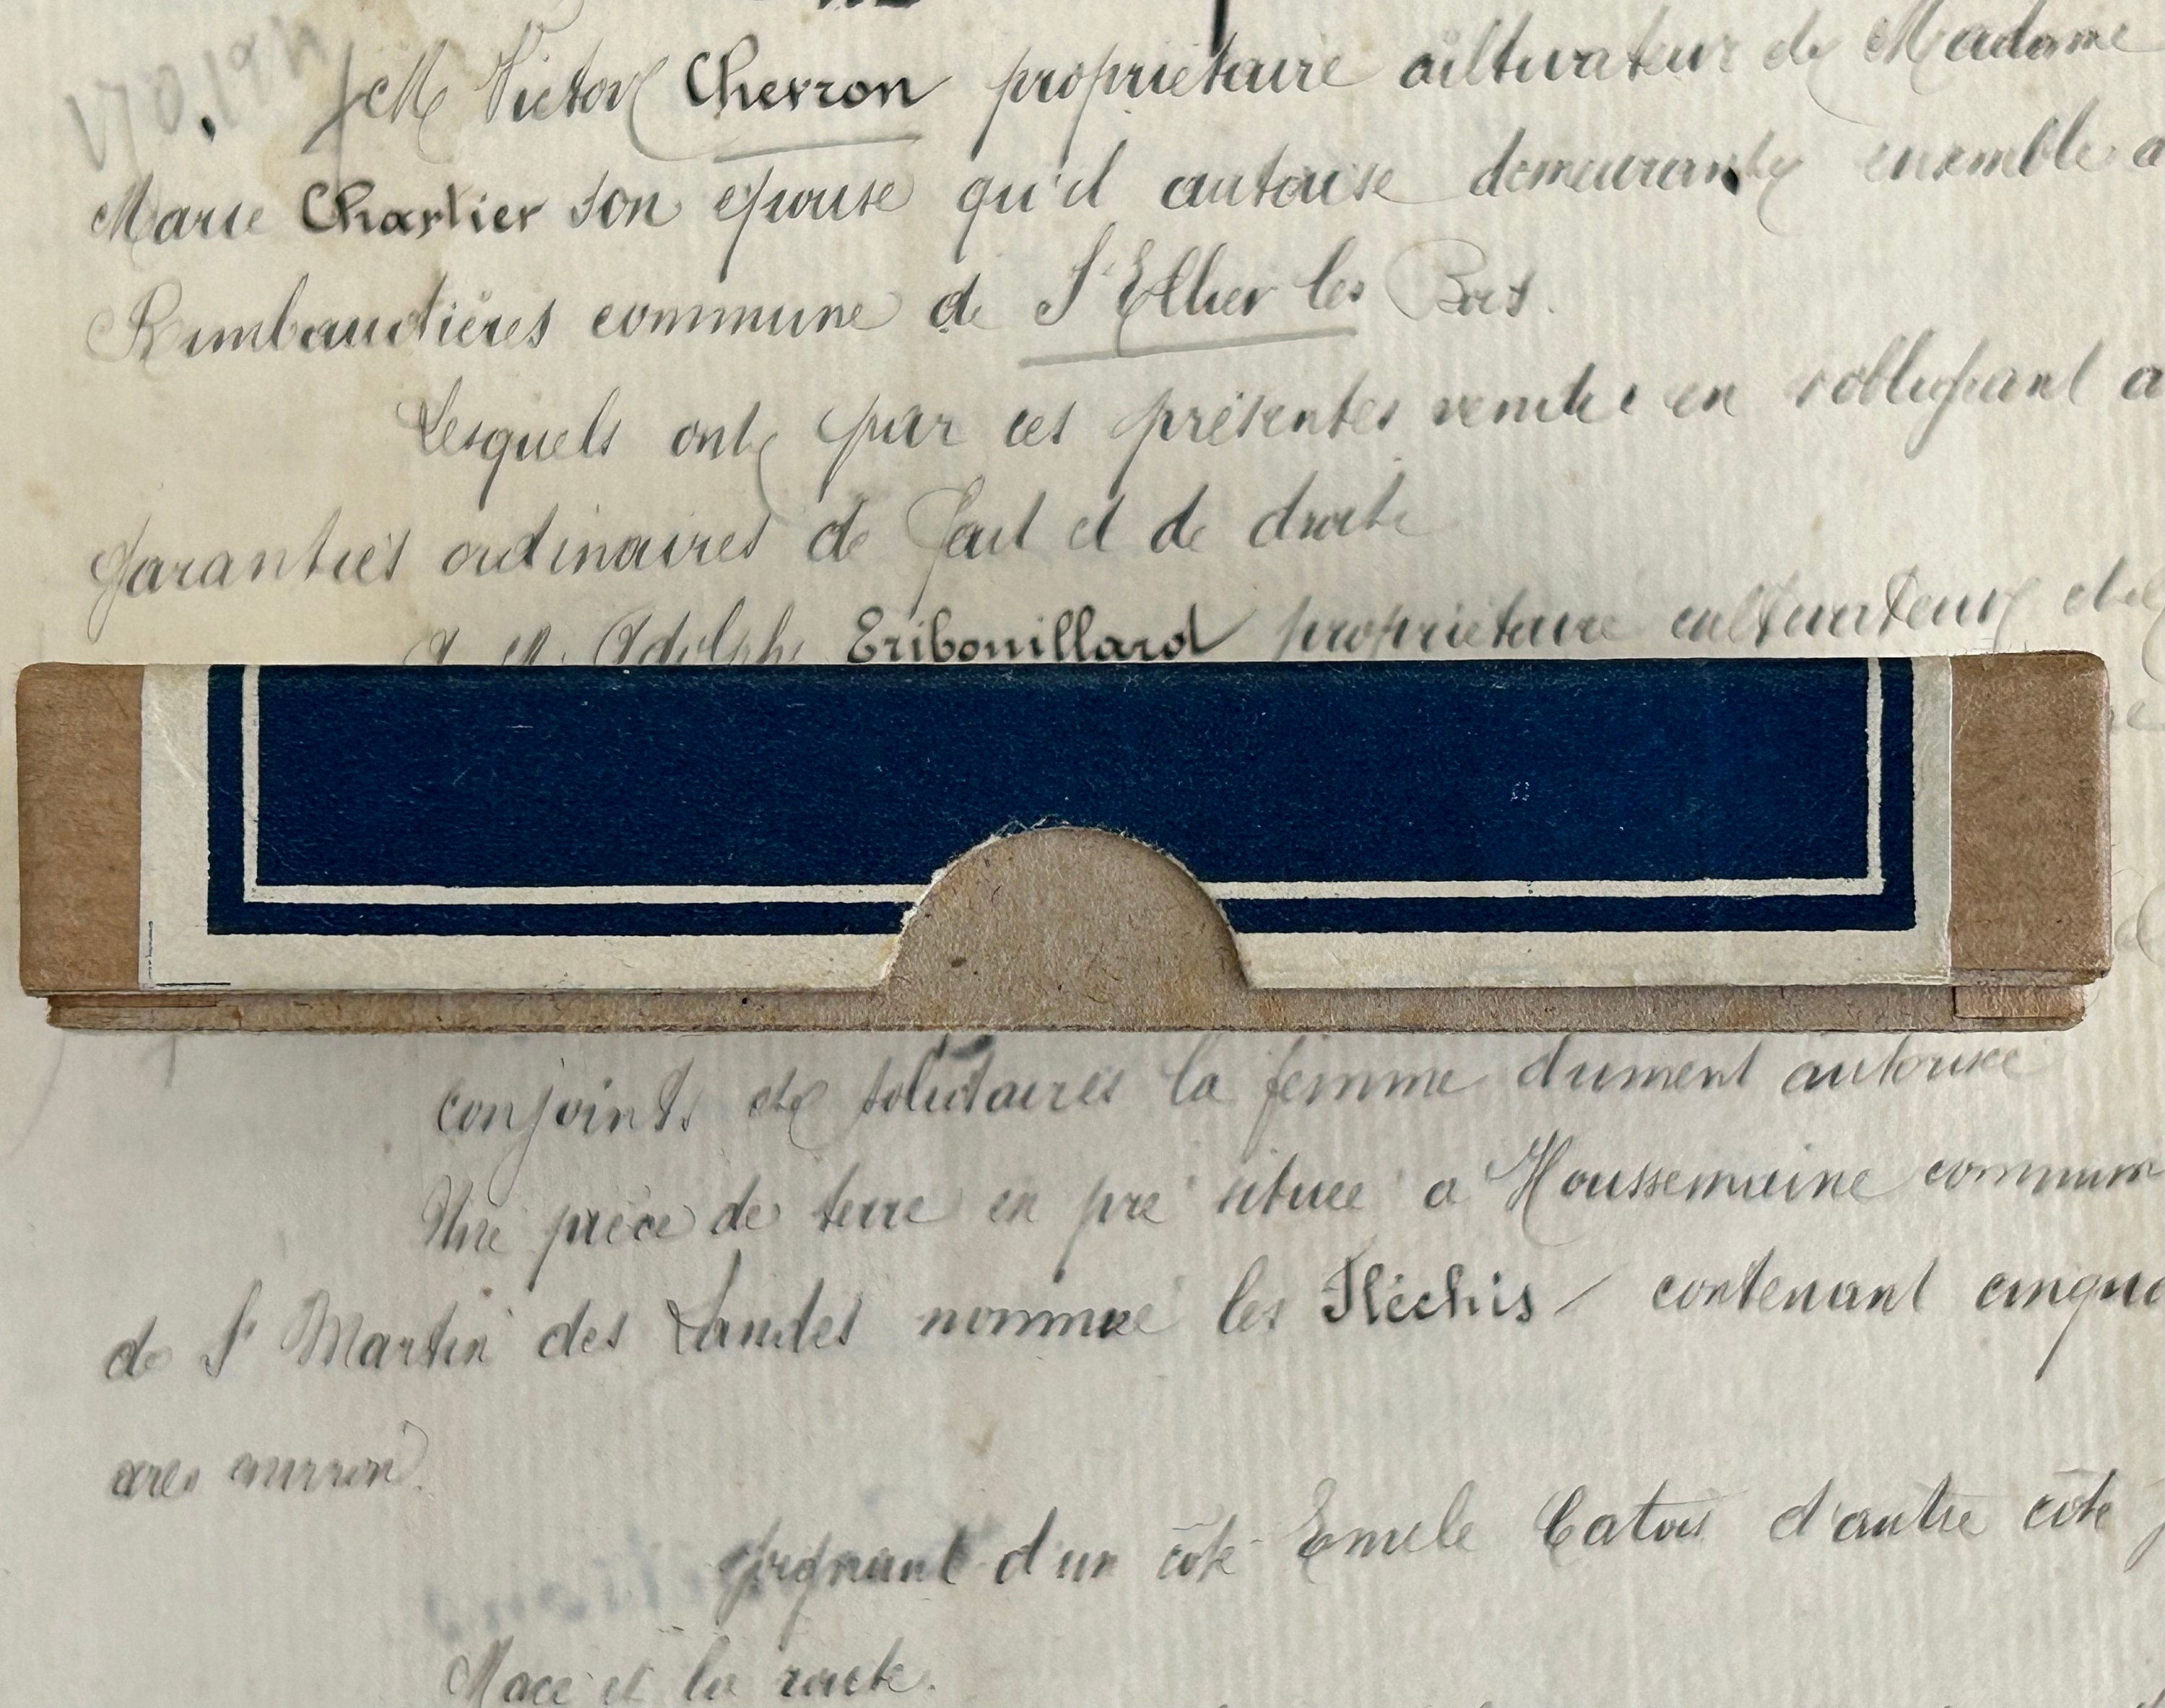 M Victor Chevron propriétaire cultivateur et Madame
Marie Chartier son épouse qu'il autorise demeurant ensemble a
Rimbaudières commune de St Ellier les Bois.
Lesquels ont par ces présentes vendu en s'obligeant a
garanties ordinaires de fait et de droit
A M. Adolphe Eribouillard propriétaire cultivateur et
conjoints et solidaires la femme dument autorisée
Une pièce de terre en pré située a Houssemaine commune
de St Martin des Landes nommée les Fléchis contenant cinqua
ares environ.
Joignant d'un côté Emile Catois d'autre côté
Macé et la route.